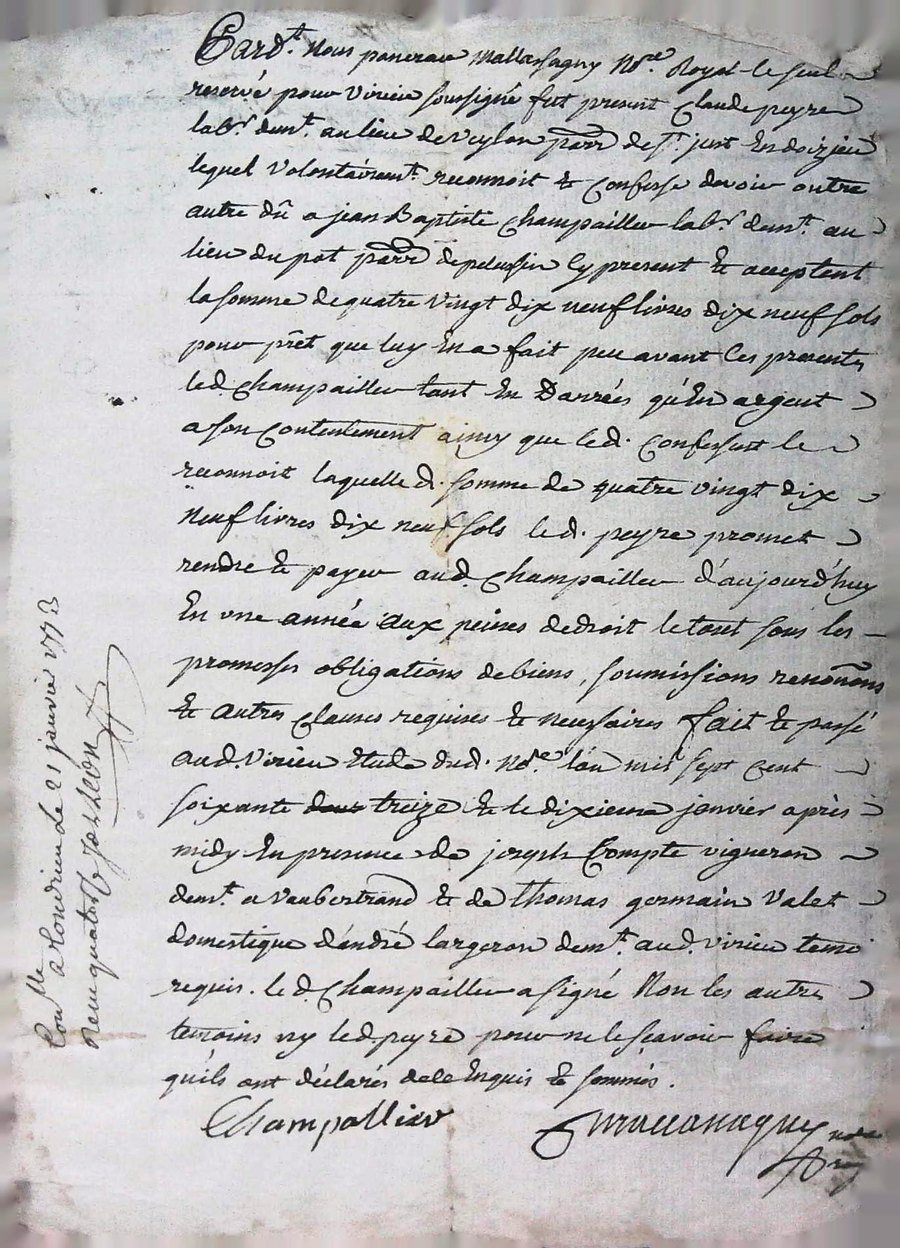 Pard.t Nous pancrace Mallassagny No.re Royal le seul
reservé pour Virieu soussigné fut present Claude peyre
lab.r dem.t au lieu de Veylon parr de S.t just En doizieu
lequel Volontairem.t reconnoit & Confesse devoir outre
autre dû a jean Baptiste Champailler lab.r dem.t au
lieu du pat parr de pelussin Cy present & acceptant
la somme de quatre Vingt dix neuf livres dix neuf sols
pour prêt que luy En a fait peu avant Ces presentes
led. Champailler tant En Danrées qu'En argent
a son Contentement ainsy que led. Confessant le
reconnoit laquelle d. somme de quatre vingt dix
Neuf livres dix neuf sols led. peyre promet
rendre & payer aud. Champailler d'aujourd'huy
En une année aux peines de droit le tout sous les
promesses obligations de biens, soumissions renonons
& autres clauses requises & necessaires fait & passé
aud. Virieu Etude dud. No.re l'an mil sept cent
soixante treize & le dixieme janvier après
midy En presence de joseph Compte vigneron
dem.t a Vaubertrand & de Thomas germain Valet
domestique d'andré largeron dem.t aud. virieu temo
requis. led. Champailler a signé Non les autres
temoins ny led. peyre pour ne le sçavoir faire
qu'ils ont déclarés de ce Enquis & sommés.
Champallier
Con.lle a Condrieu le 21 janvier 1773